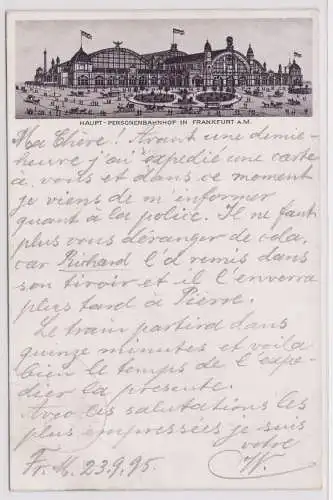 HAUPT-PERSONENBAHNHOF IN FRANKFURT A.M.
Ma Chère! Avant une demie-
heure j'ai expedié une carte
à vous et dans ce moment
je viens de m'informer
quant à la police. Il ne faut
plus vous déranger de cela,
car Richard l'a remis dans
son tiroir et il l'enverra
plus tard à Pierre.
Le train partira dans
quinze minutes et voila
bien le temps de l'expe-
dier la présente.
Avec les salutations les
plus empressées je suis
votre
Fr. M. 23.9.95. W.